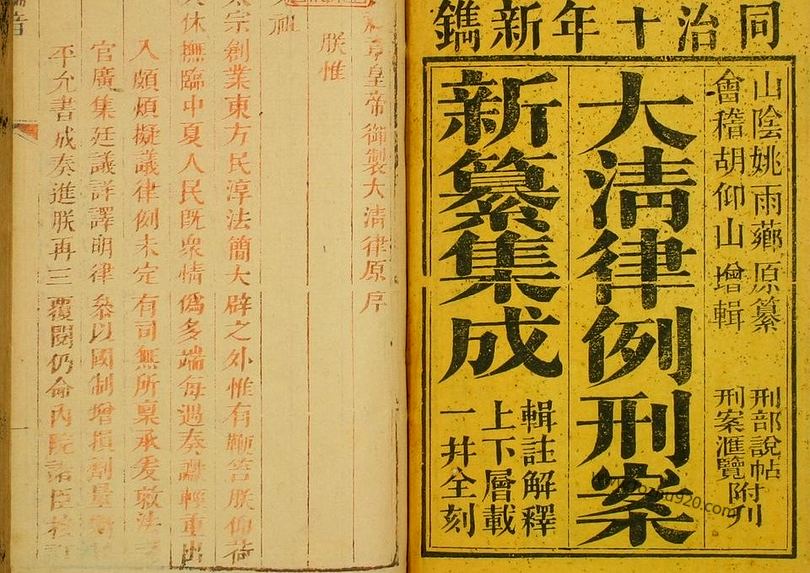 同治十年新鐫
山陰姚雨薌原纂
會稽胡仰山增輯
刑部說帖
刑案滙覽附刋
大清律例刑案
新纂集成
輯註解釋
上下層載
一幷全刻
皇帝御製大清律原序
朕惟
太宗創業東方民淳法簡大辟之外惟有鞭笞朕仰荷
休撫臨中夏人民既衆情僞多端每遇奏讞輕重出
入頗煩擬議律例未定有司無所稟承爰敕法
官廣集廷議詳譯明律叅以國制增損劑量
平允書成奏進朕再三覆閱仍命內院諸臣